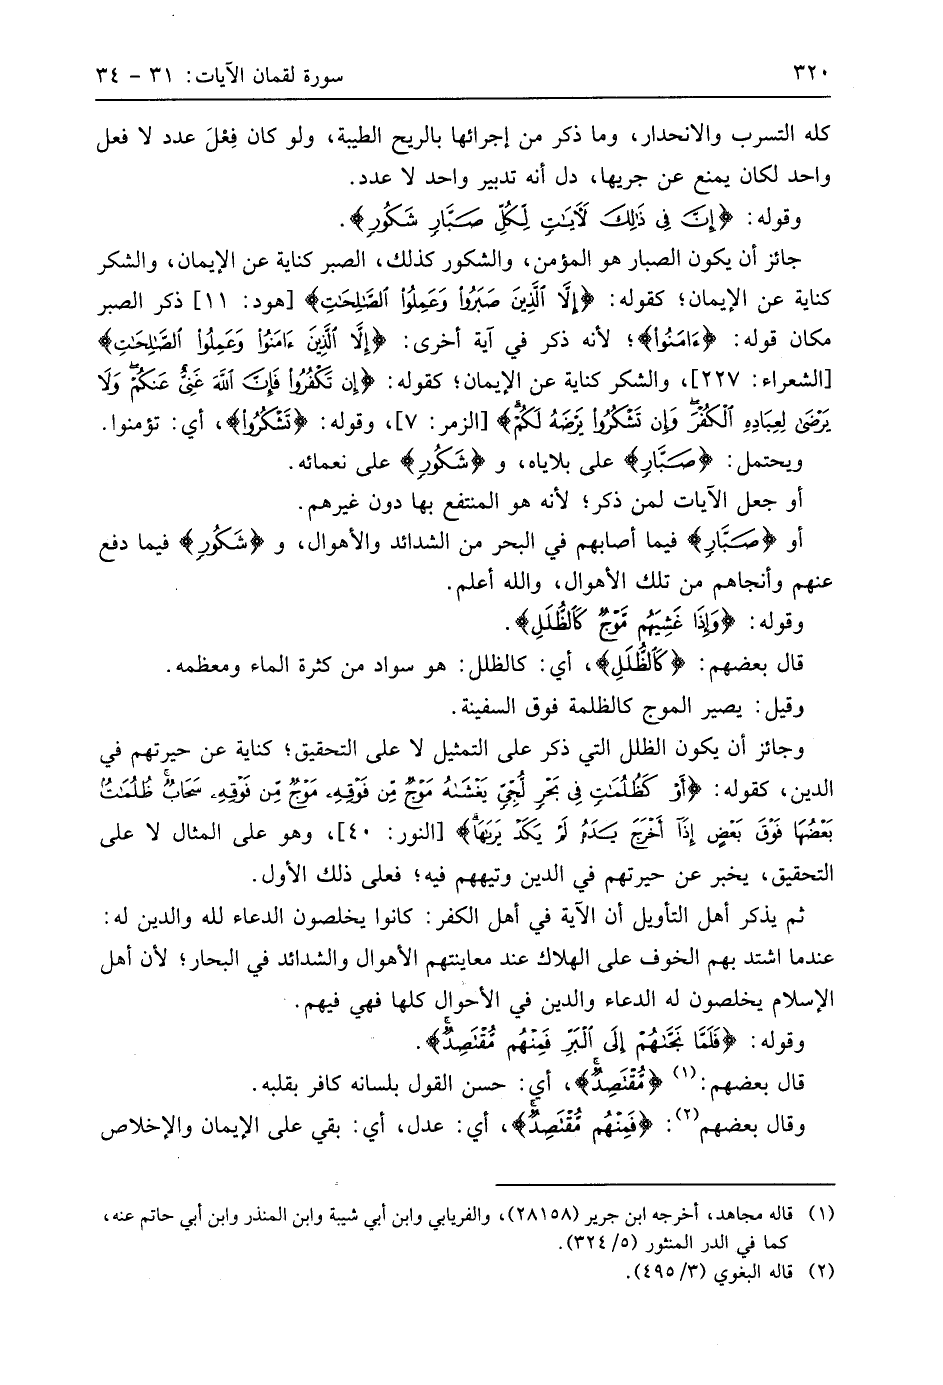 ٣٢٠
سورة لقمان الآيات: ٣١ - ٣٤
كله التسرب والانحدار، وما ذكر من إجرائها بالريح الطيبة، ولو كان فِعْلَ عدد لا فعل
واحد لكان يمنع عن جريها، دل أنه تدبير واحد لا عدد.
وقوله: ﴿إِنَّ فِى ذَٰلِكَ لَأٓيَٰتٍ لِّكُلِّ صَبَّارٍ شَكُورٍ﴾.
جائز أن يكون الصبار هو المؤمن، والشكور كذلك، الصبر كناية عن الإيمان، والشكر
كناية عن الإيمان؛ كقوله: ﴿إِلَّا ٱلَّذِينَ صَبَرُوا۟ وَعَمِلُوا۟ ٱلصَّٰلِحَٰتِ﴾ [هود: ١١] ذكر الصبر
مكان قوله: ﴿ءَامَنُوا۟﴾؛ لأنه ذكر في آية أخرى: ﴿إِلَّا ٱلَّذِينَ ءَامَنُوا۟ وَعَمِلُوا۟ ٱلصَّٰلِحَٰتِ﴾
[الشعراء: ٢٢٧]، والشكر كناية عن الإيمان؛ كقوله: ﴿إِن تَكْفُرُوا۟ فَإِنَّ ٱللَّهَ غَنِىٌّ عَنكُمْ ۖ وَلَا
يَرْضَىٰ لِعِبَادِهِ ٱلْكُفْرَ ۖ وَإِن تَشْكُرُوا۟ يَرْضَهُ لَكُمْ ۗ﴾ [الزمر: ٧]، وقوله: ﴿تَشْكُرُوا۟﴾، أي: تؤمنوا.
ويحتمل: ﴿صَبَّارٍ﴾ على بلاياه، و ﴿شَكُورٍ﴾ على نعمائه.
أو جعل الآيات لمن ذكر؛ لأنه هو المنتفع بها دون غيرهم.
أو ﴿صَبَّارٍ﴾ فيما أصابهم في البحر من الشدائد والأهوال، و ﴿شَكُورٍ﴾ فيما دفع
عنهم وأنجاهم من تلك الأهوال، والله أعلم.
وقوله: ﴿وَإِذَا غَشِيَهُم مَّوْجٌ كَٱلظُّلَلِ﴾.
قال بعضهم: ﴿كَٱلظُّلَلِ﴾، أي: كالظلل: هو سواد من كثرة الماء ومعظمه.
وقيل: يصير الموج كالظلمة فوق السفينة.
وجائز أن يكون الظلل التي ذكر على التمثيل لا على التحقيق؛ كناية عن حيرتهم في
الدين، كقوله: ﴿أَوْ كَظُلُمَٰتٍ فِى بَحْرٍ لُّجِّىٍّ يَغْشَىٰهُ مَوْجٌ مِّن فَوْقِهِۦ مَوْجٌ مِّن فَوْقِهِۦ سَحَابٌ ۚ ظُلُمَٰتٌۢ
بَعْضُهَا فَوْقَ بَعْضٍ إِذَآ أَخْرَجَ يَدَهُۥ لَمْ يَكَدْ يَرَىٰهَا ۗ﴾ [النور: ٤٠]، وهو على المثال لا على
التحقيق، يخبر عن حيرتهم في الدين وتيههم فيه؛ فعلى ذلك الأول.
ثم يذكر أهل التأويل أن الآية في أهل الكفر: كانوا يخلصون الدعاء لله والدين له:
عندما اشتد بهم الخوف على الهلاك عند معاينتهم الأهوال والشدائد في البحار؛ لأن أهل
الإسلام يخلصون له الدعاء والدين في الأحوال كلها فهي فيهم.
وقوله: ﴿فَلَمَّا نَجَّىٰهُمْ إِلَى ٱلْبَرِّ فَمِنْهُم مُّقْتَصِدٌ ۚ﴾.
قال بعضهم:(١) ﴿مُّقْتَصِدٌ ۚ﴾، أي: حسن القول بلسانه كافر بقلبه.
وقال بعضهم(٢): ﴿فَمِنْهُم مُّقْتَصِدٌ ۚ﴾، أي: عدل، أي: بقي على الإيمان والإخلاص
(١) قاله مجاهد، أخرجه ابن جرير (٢٨١٥٨)، والفريابي وابن أبي شيبة وابن المنذر وابن أبي حاتم عنه،
كما في الدر المنثور (٥/ ٣٢٤).
(٢) قاله البغوي (٣/ ٤٩٥).